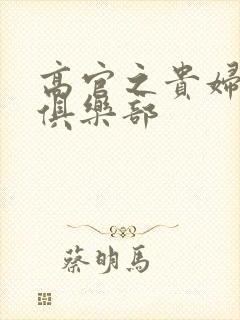 高官之貴婦
俱樂部
蔡明馬